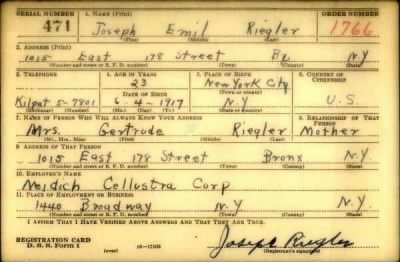 SERIAL NUMBER 1. NAME (Print) ORDER NUMBER
471 Joseph Emil Riegler 1766
(First) (Middle) (Last)
2. ADDRESS (Print)
1015 East 178 Street Bx. N.Y
(Number and street or R. F. D. number) (Town) (County) (State)
3. TELEPHONE 4. AGE IN YEARS 5. PLACE OF BIRTH 6. COUNTRY OF CITIZENSHIP
23 New York City
DATE OF BIRTH (Town or county)
Kilpat 5-7801 6-4-1917 N.Y U.S.
(Exchange) (Number) (Mo.) (Day) (Yr.) (State or country)
7. NAME OF PERSON WHO WILL ALWAYS KNOW YOUR ADDRESS 8. RELATIONSHIP OF THAT PERSON
Mrs. Gertrude Riegler Mother
(Mr., Mrs., Miss) (First) (Middle) (Last)
9. ADDRESS OF THAT PERSON
1015 East 178 Street Bronx N.Y.
(Number and street or R. F. D. number) (Town) (County) (State)
10. EMPLOYER'S NAME
Neidich Cellustra Corp
11. PLACE OF EMPLOYMENT OR BUSINESS
1440 Broadway N.Y N.Y.
(Number and street or R. F. D. number) (Town) (County) (State)
I AFFIRM THAT I HAVE VERIFIED ABOVE ANSWERS AND THAT THEY ARE TRUE.
REGISTRATION CARD
D. S. S. FORM 1 (over) 16-17105 Joseph Riegler
(Registrant's signature)